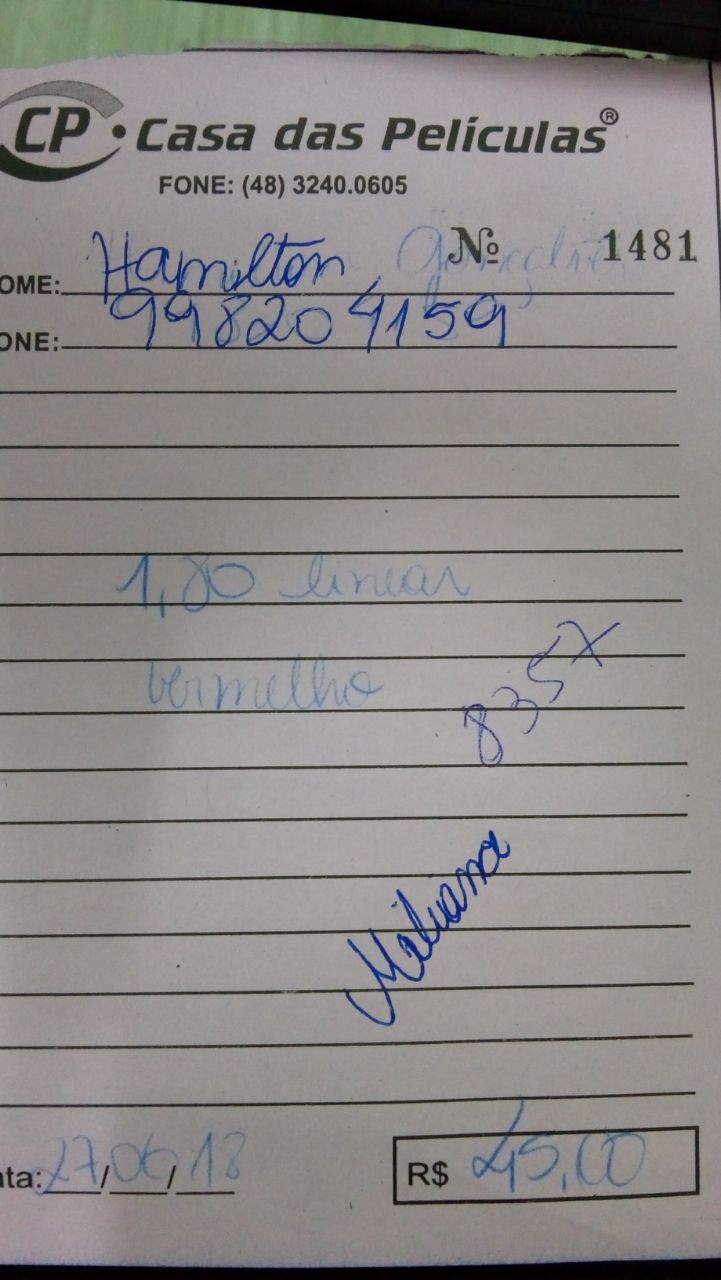 CP • Casa das Películas®
FONE: (48) 3240.0605
Nº 1481
OME: Hamilton
ONE: 998209159
1,80 linear
vermelho
835X
ata: 27/06/18
R$ 45,00